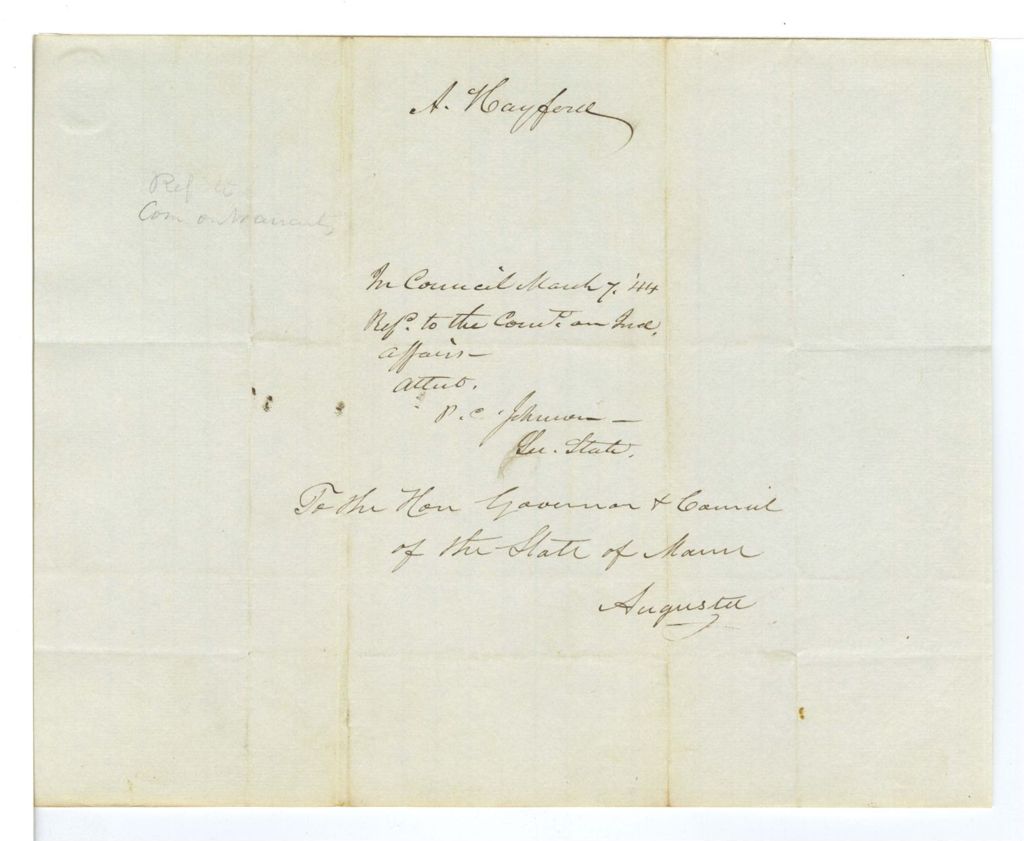 A. Hayford
Ref to
Com on Warrants
In Council March 7. '44
Refd. to the Comte. on Ind.
affairs—
Attest.
P. C. Johnson —
Sec. State.
To the Hon Governor & Council
of the State of Maine
Augusta